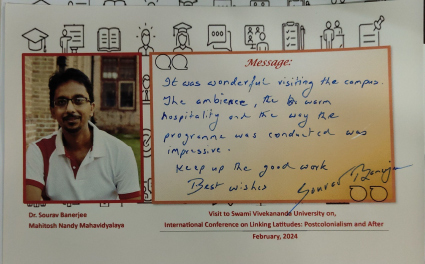 Message:
It was wonderful visiting the campus.
The ambience, the warm
hospitality and the way the
programme was conducted was
impressive.
Keep up the good work
Best wishes
Sourav Banerjee
Dr. Sourav Banerjee
Mahitosh Nandy Mahavidyalaya
Visit to Swami Vivekananda University on,
International Conference on Linking Latitudes: Postcolonialism and After
February, 2024